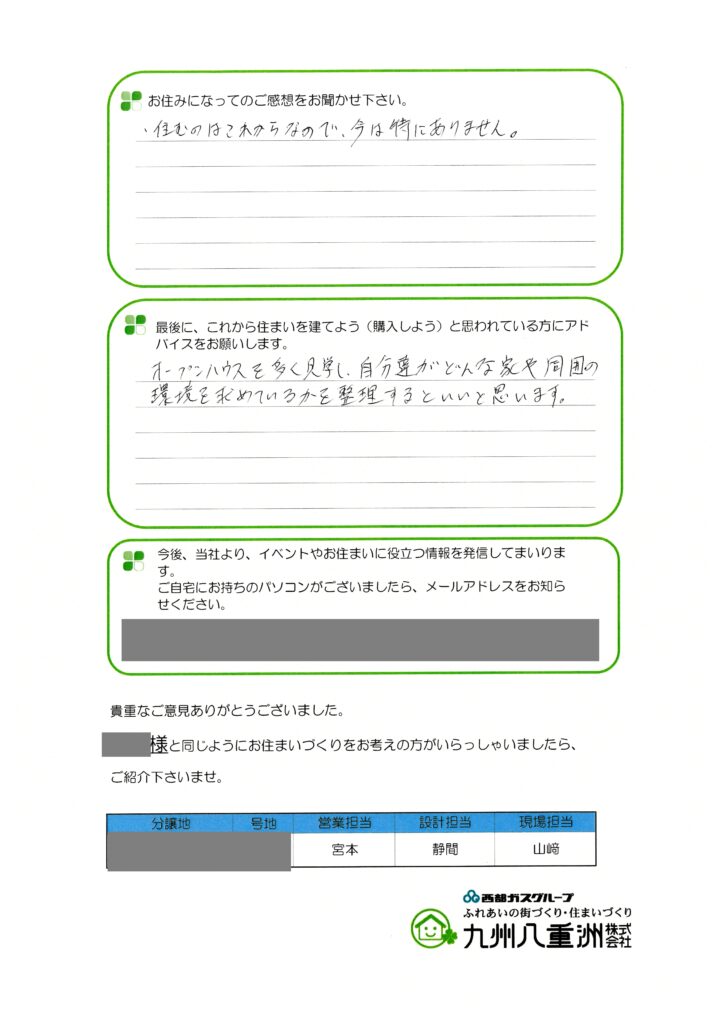 お住みになってのご感想をお聞かせ下さい。
・住むのはこれからなので、今は特にありません。
最後に、これから住まいを建てよう（購入しよう）と思われている方にアド
バイスをお願いします。
オープンハウスを多く見学し、自分達がどんな家や周囲の
環境を求めているかを整理するといいと思います。
今後、当社より、イベントやお住まいに役立つ情報を発信してまいりま
す。
ご自宅にお持ちのパソコンがございましたら、メールアドレスをお知ら
せください。
貴重なご意見ありがとうございました。
様と同じようにお住まいづくりをお考えの方がいらっしゃいましたら、
ご紹介下さいませ。
分譲地 号地 営業担当 設計担当 現場担当
宮本 静間 山﨑
西部ガスグループ
ふれあいの街づくり・住まいづくり
九州八重洲株式会社